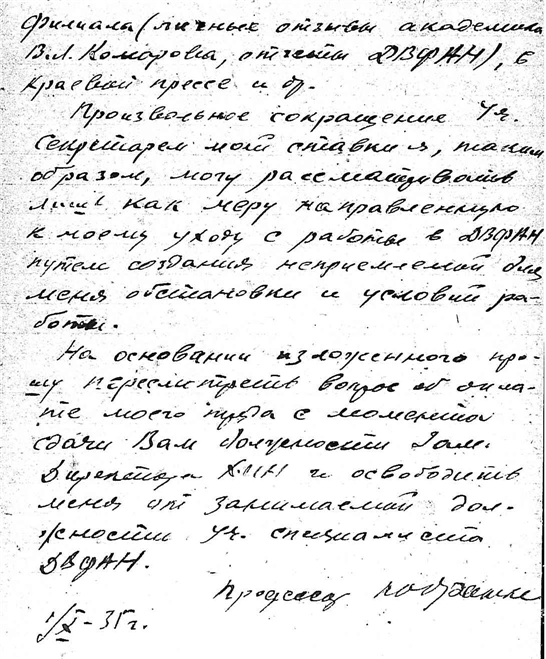 филиала (личные отзывы академика
В.Л. Комарова, отчеты ДВФАН), в
краевой прессе и др.
Произвольное сокращение Уч.
Секретарем моей ставки я, таким
образом, могу рассматривать
лишь как меру направленную
к моему уходу с работы в ДВФАН
путем создания неприемлемой для
меня обстановки и условий ра-
боты.
На основании изложенного про-
шу пересмотреть вопрос об опла-
те моего труда с момента
сдачи Вам должности Зам.
Директора ХИН и освободить
меня от занимаемой дол-
жности Уч. специалиста
ДВФАН.
Профессор
1/X-35 г.